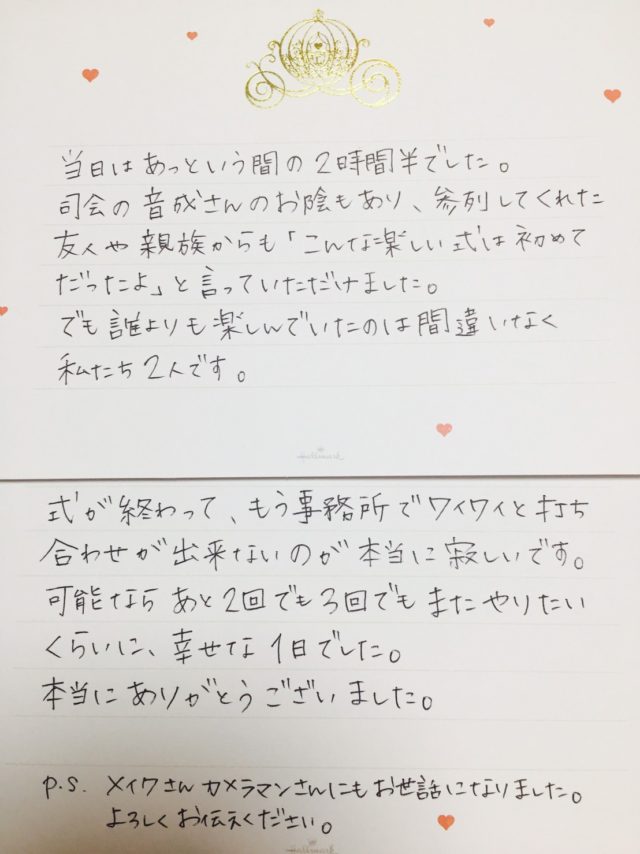 当日はあっという間の2時間半でした。
司会の音成さんのお陰もあり、参列してくれた
友人や親族からも「こんな楽しい式は初めて
だったよ」と言っていただけました。
でも誰よりも楽しんでいたのは間違いなく
私たち2人です。
Hallmark
式が終わって、もう事務所でワイワイと打ち
合わせが出来ないのが本当に寂しいです。
可能ならあと2回でも3回でもまたやりたい
くらいに、幸せな1日でした。
本当にありがとうございました。
p.s. メイクさんカメラマンさんにもお世話になりました。
よろしくお伝えください。
Hallmark